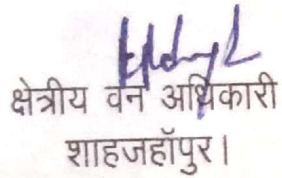 क्षेत्रीय वन अधिकारी
शाहजहॉपुर।